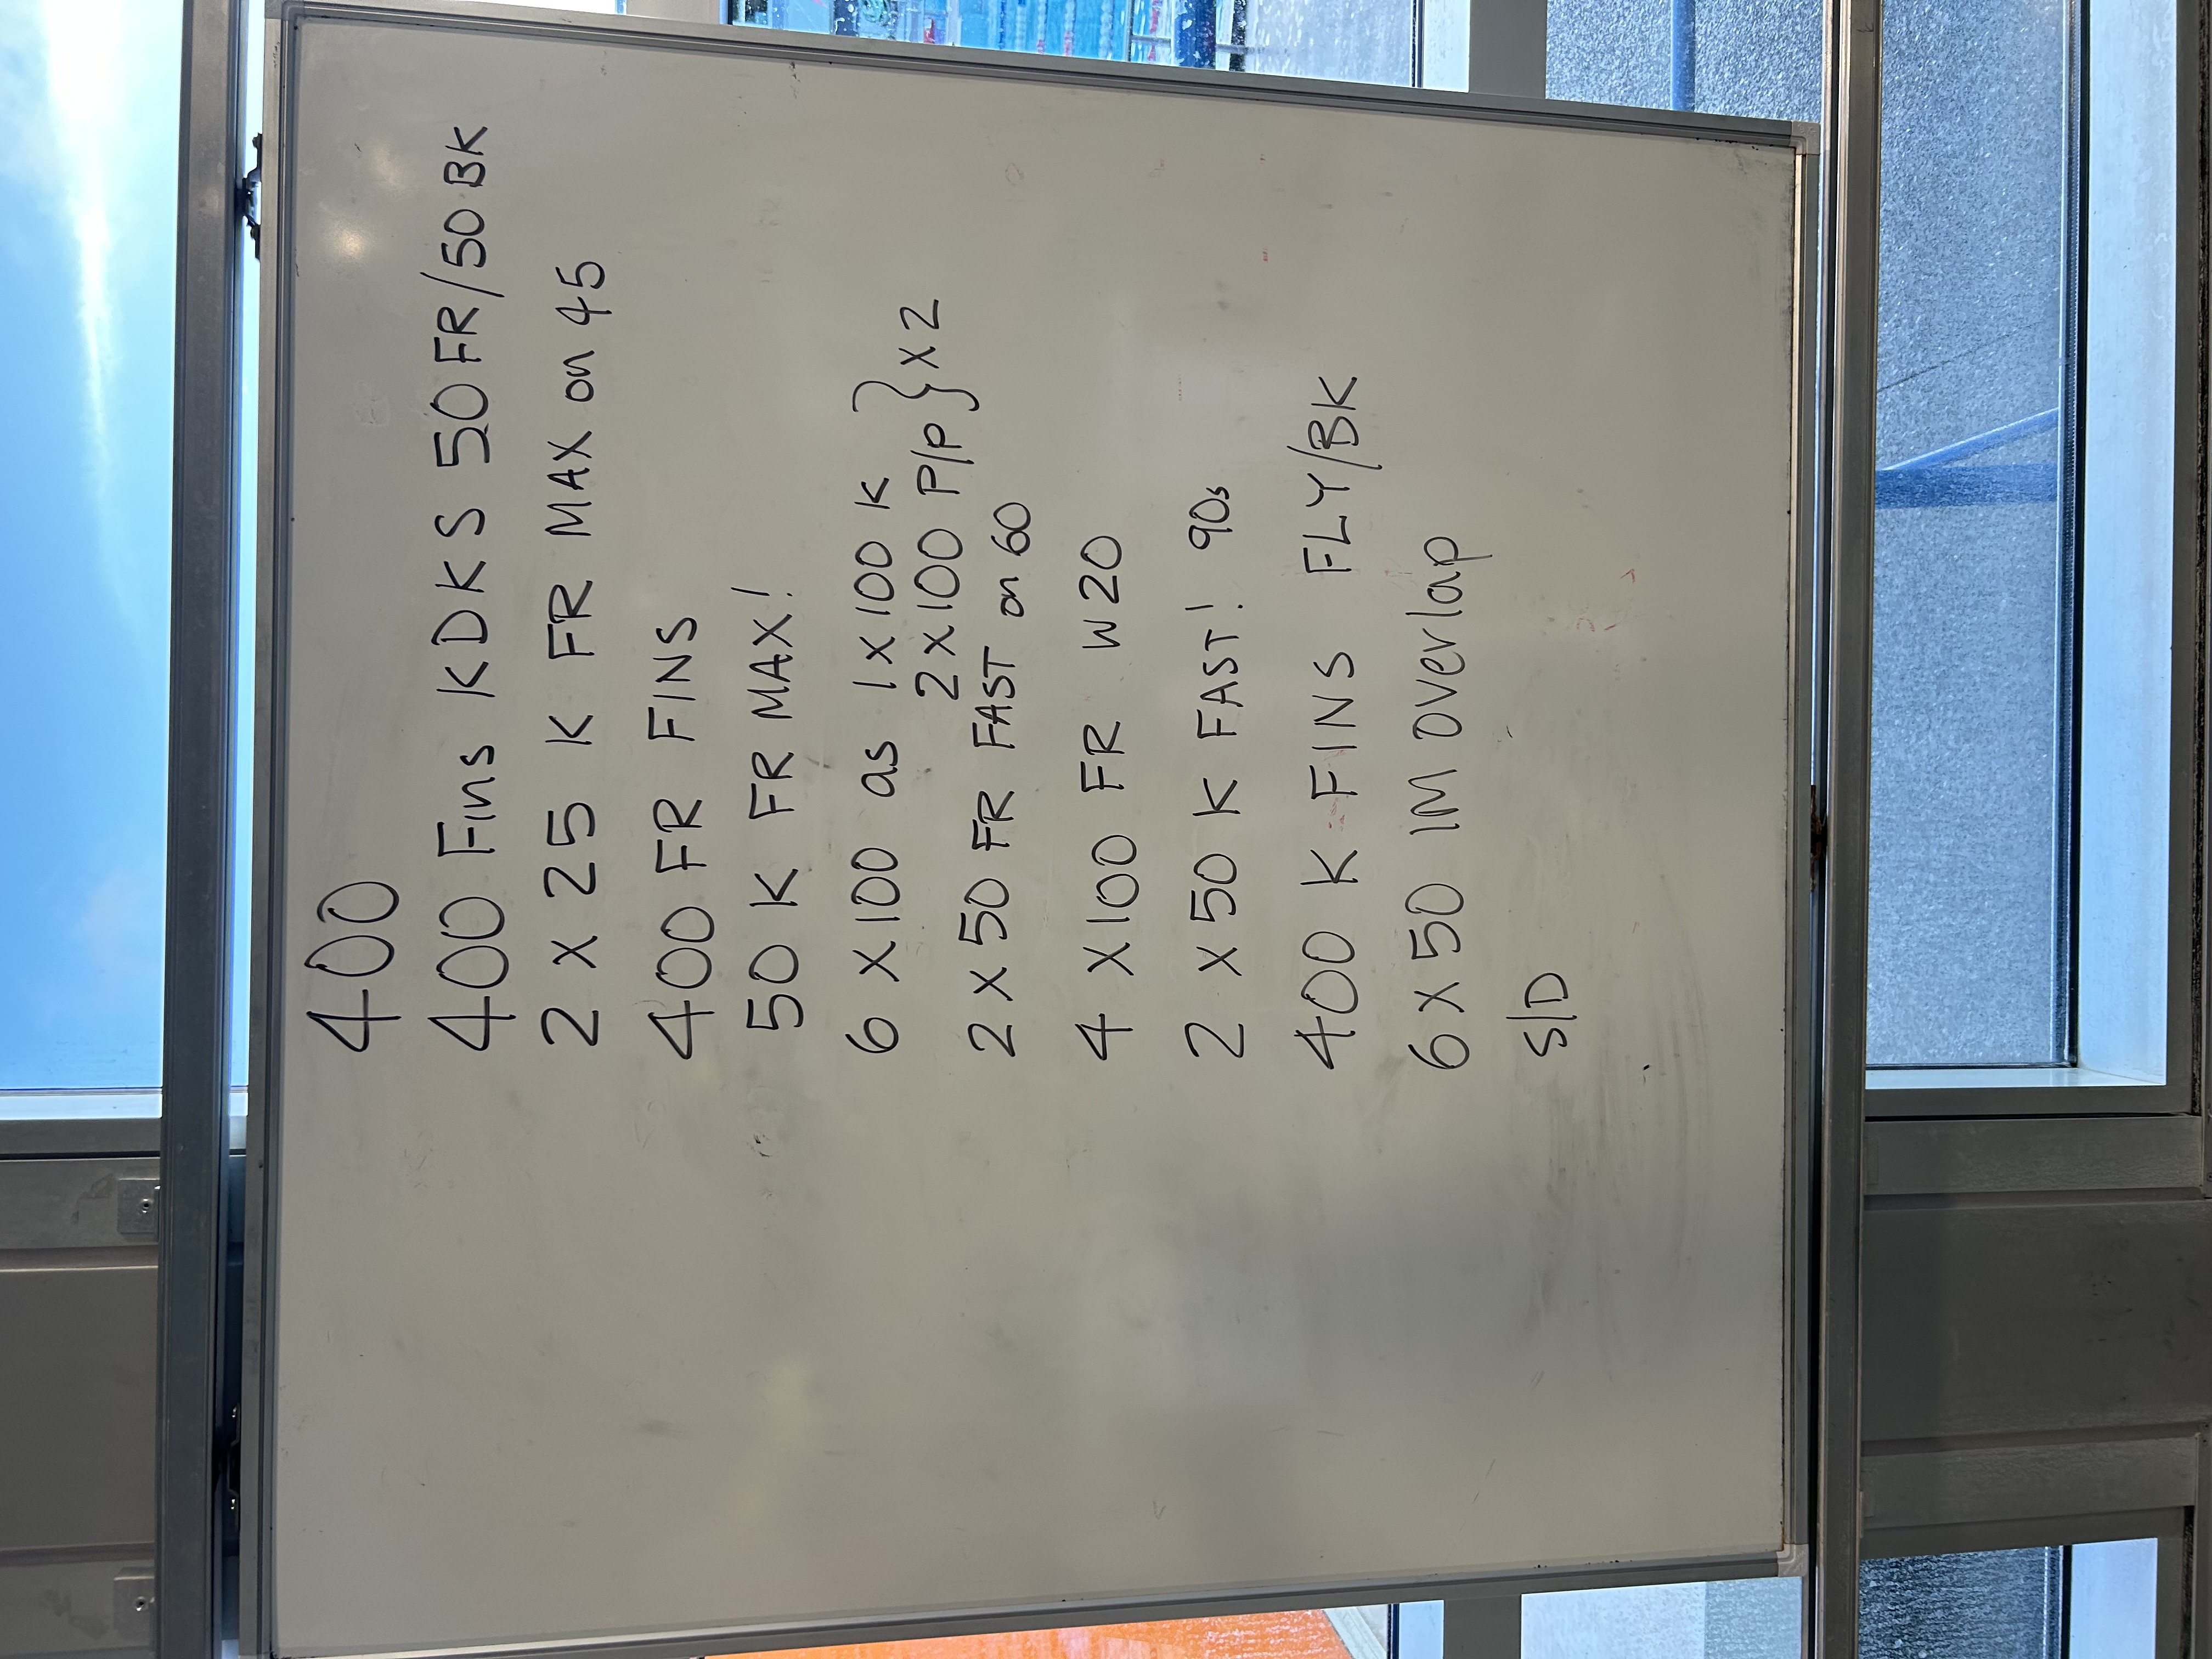 400
400 Fins KDKS 50FR/50BK
2 x 25 K FR MAX on 45
400 FR FINS
50 K FR MAX!
6 x 100 as 1 x 100 K
2 x 100 P/p } x 2
2 x 50 FR FAST on 60
4 x 100 FR W20
2 x 50 K FAST! 90s
400 K FINS FLY/BK
6 x 50 IM overlap
S/D